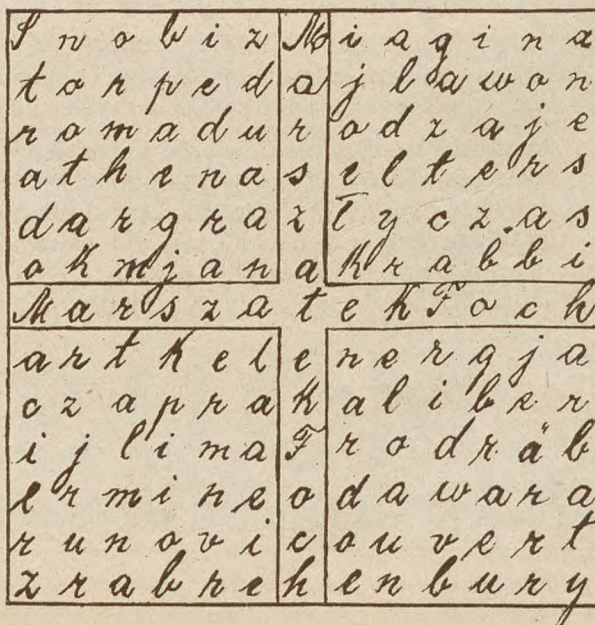 S n o b i z M i a g i n a
t o r p e d a j l a w o n
r o m a d u r o d z a j e
a t h e n a s e l t e r s
d a r g r a z ł y c z a s
o K m j a n a K r a b b i
M a r s z a ł e k F o c h
a r t K e l e n e r g j a
c z a p r a K a l i b e r
i j l i m a F r o d r ä b
e r m i n e o d a w a r a
r u n o v i c o u v e r t
z r a b r e h e n b u r y